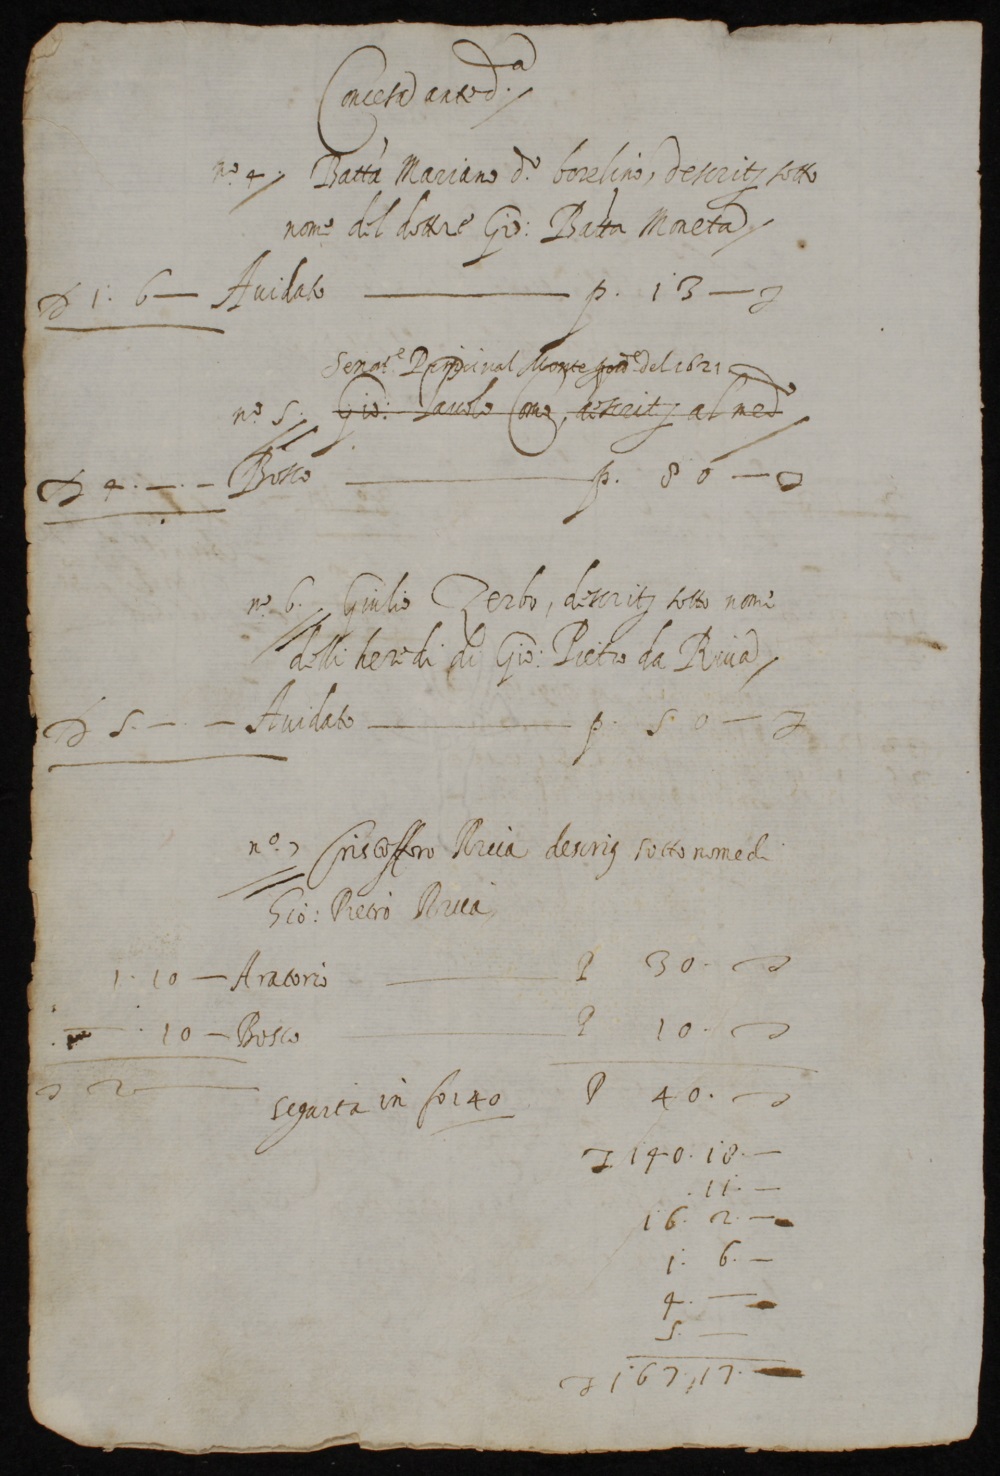 Concesa anted.ª
n.º 4. Batta Mariano d.º borelino, descritt sotto
nome del dottre Gio: Batta Moneta
1. 6 — Avidato — p. 13 —
Senat.e Principal Monte del 1621
n.º 5. Gio: Paolo Como, descritt al med.º
4. — . — Bosco — p. 80 —
n.º 6. Giulio Zerbo, descritt sotto nome
delli heredi di Gio: Pietro da Riva
5. — . — Avidato — p. 50 —
n.º 7 Cristofforo Riva descrit sotto nome di
Gio: Pietro Riva
1. 10 — Aratorio — P 30.
. 10 — Bosco — P 10.
2 — P 40.
segarta in fo 140
140. 18. —
. 11. —
16. 2. —
1. 6. —
4. —
5. —
167, 17. —